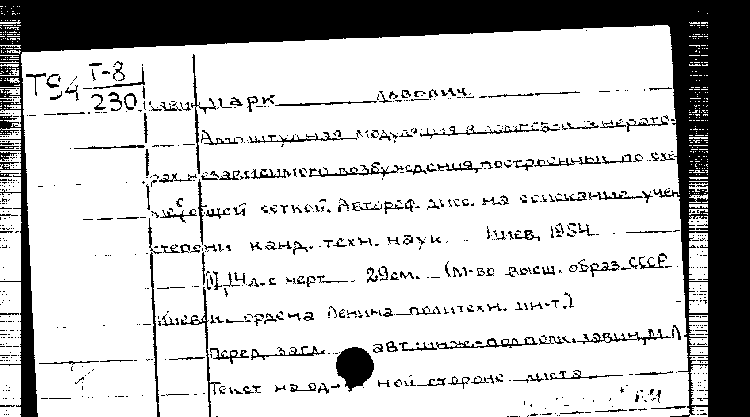 Т-8
Т54
230
Марк Львович
Амплитудная модуляция в генерато-
рах независимого возбуждения, построенных по схе-
ме с общей сеткой. Автореф. дисс. на соискание учен
степени канд. техн. наук. Киев, 1954
14 л. с черт. 29см. (М-во высш. образ. СССР
Киевск. ордена Ленина политехн. ин-т.)
Перед загл. авт. инж.-подполк. М.Л.
Текст на од- ной стороне листа